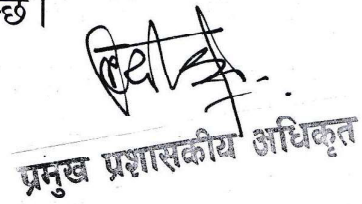 छ।
प्रमुख प्रशासकीय अधिकृत